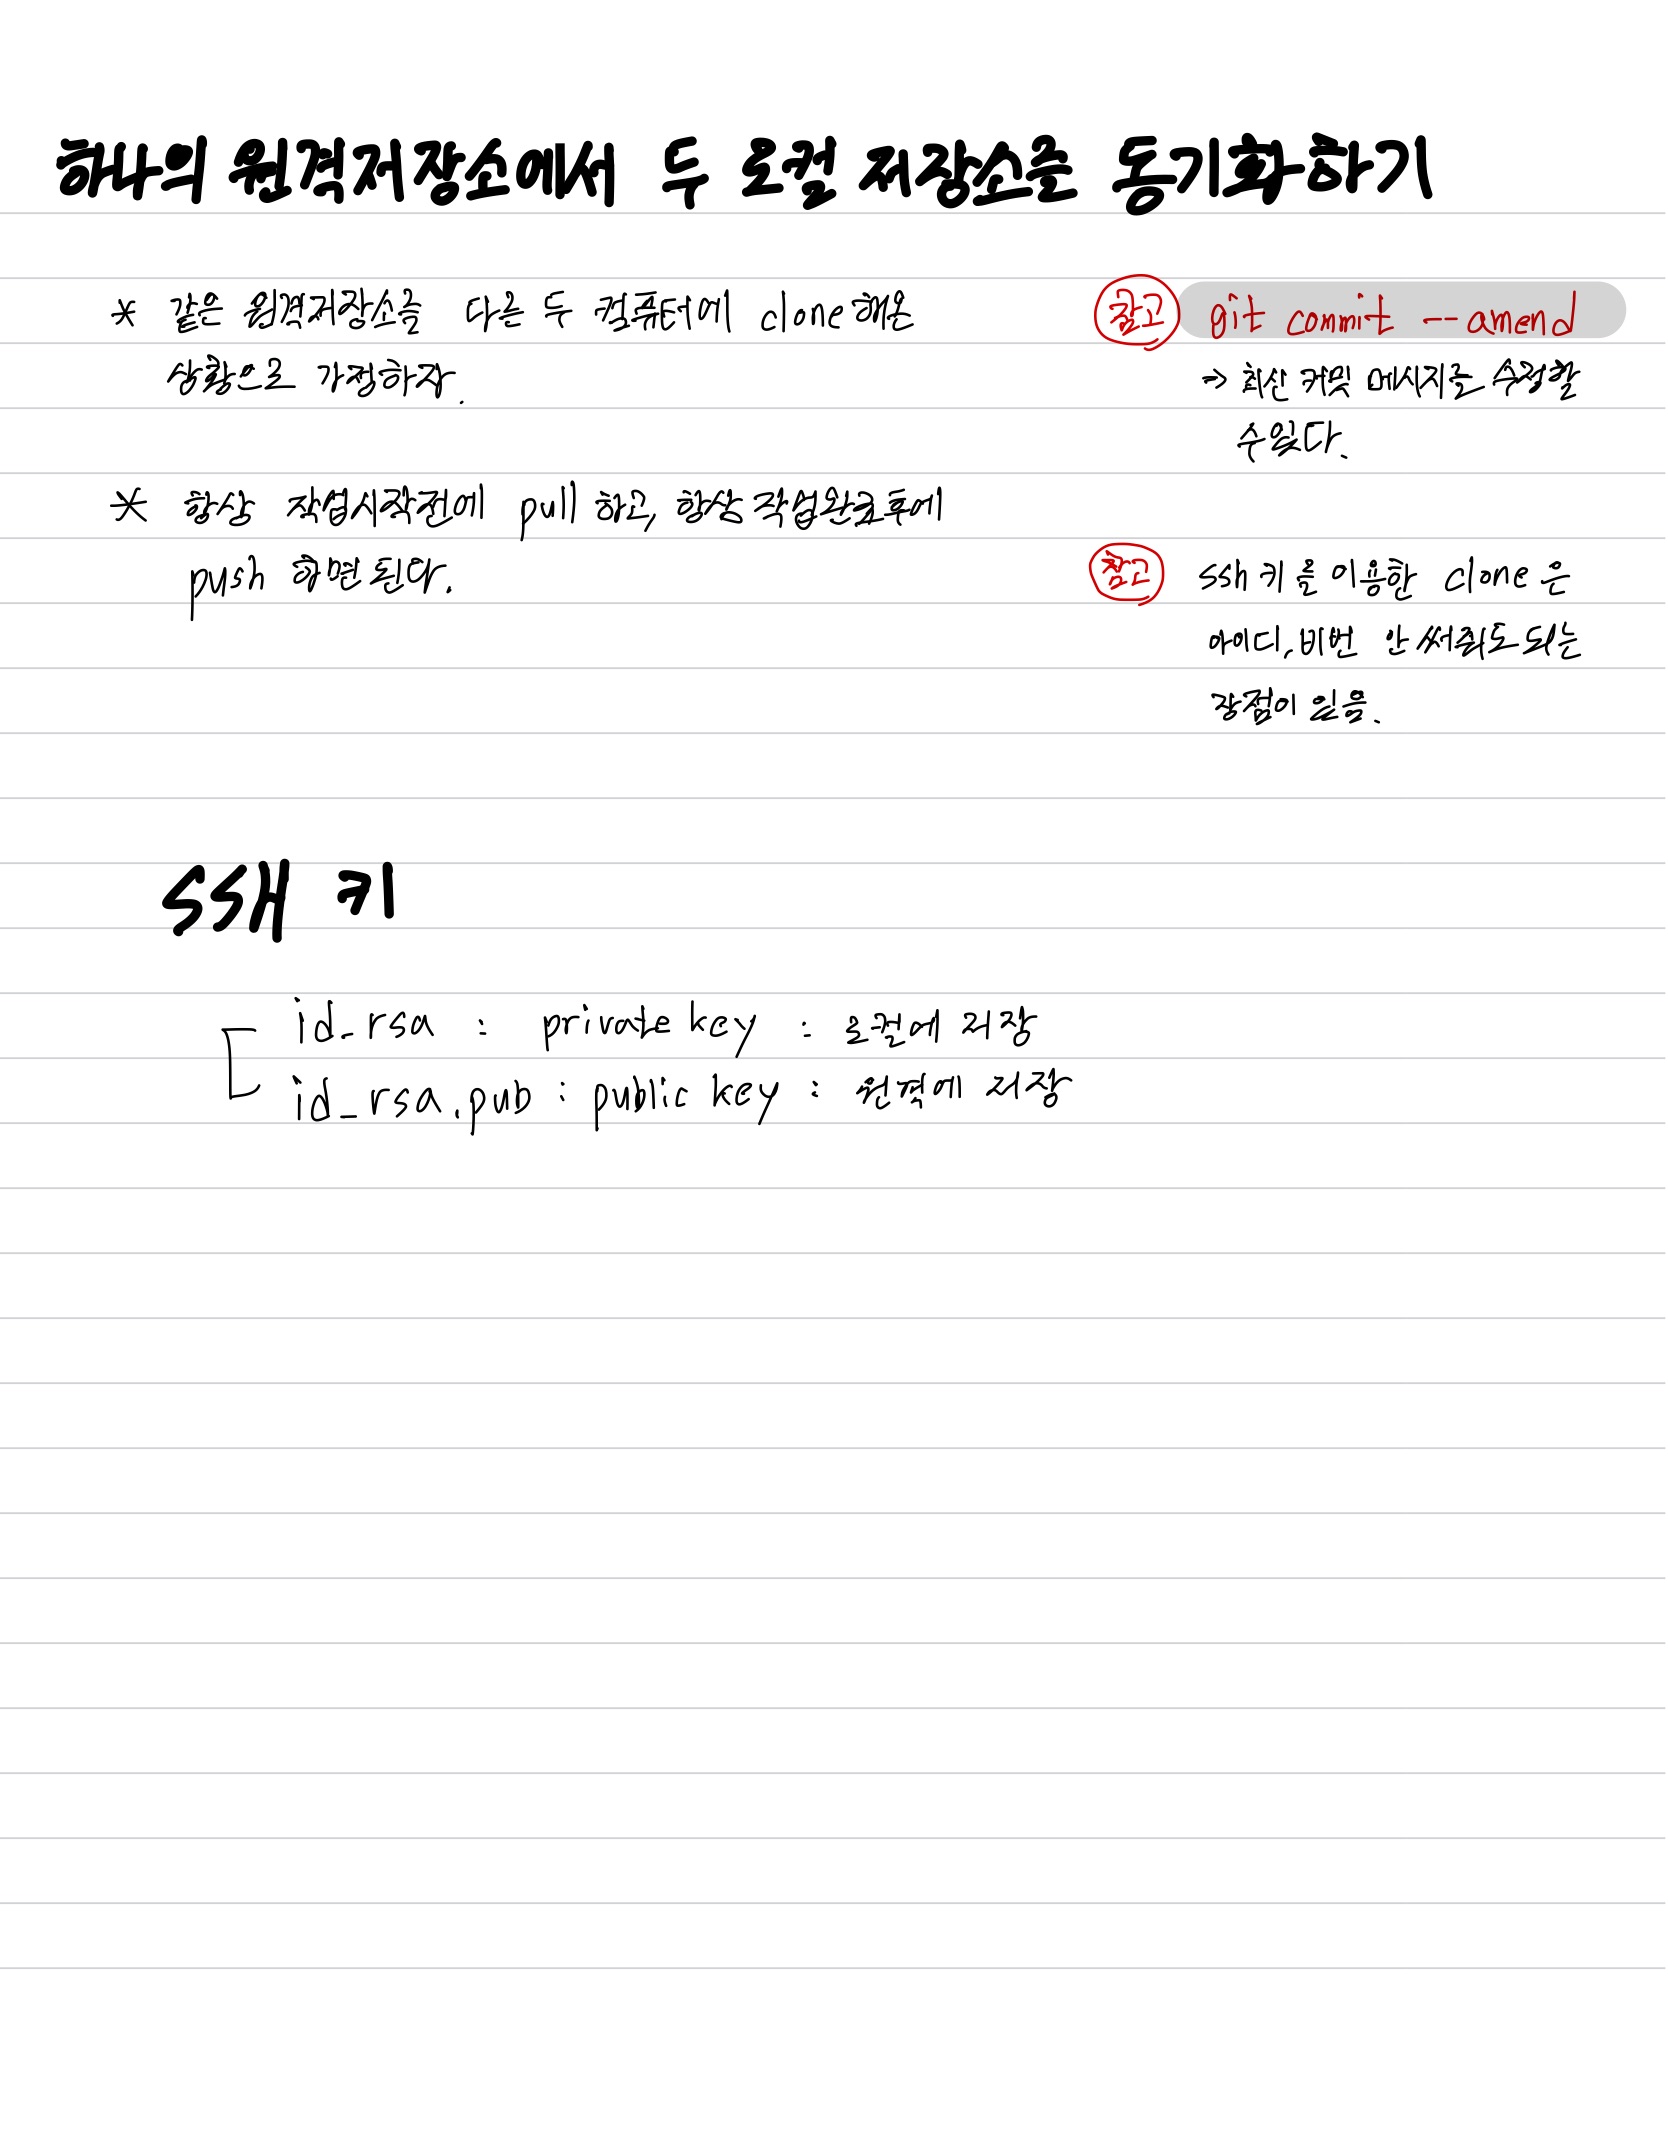 하나의 원격저장소에서 두 로컬 저장소를 동기화하기
* 같은 원격저장소를 다른 두 컴퓨터에 clone해온
상황으로 가정하자.
* 항상 작업시작전에 pull 하고, 항상 작업완료후에
push 하면 된다.
참고 git commit --amend
⇒ 최신 커밋 메시지를 수정할
수 있다.
참고 ssh 키를 이용한 clone은
아이디, 비번 안 써줘도 되는
장점이 있음.
SSH 키
id_rsa : private key : 로컬에 저장
id_rsa.pub : public key : 원격에 저장